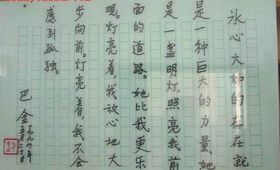 冰心大姐的存在就
是一种巨大的力量，她
是一盏明灯，照亮我前
面的道路。她比我更乐
观。灯亮着，我放心地大
步向前。灯亮着，我不会
感到孤独。
巴金